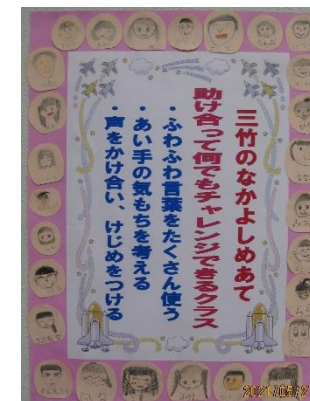 三竹のなかよしめあて
助け合って何でもチャレンジできるクラス
・ふわふわ言葉をたくさん使う
・あい手の気もちを考える
・声をかけ合い、けじめをつける